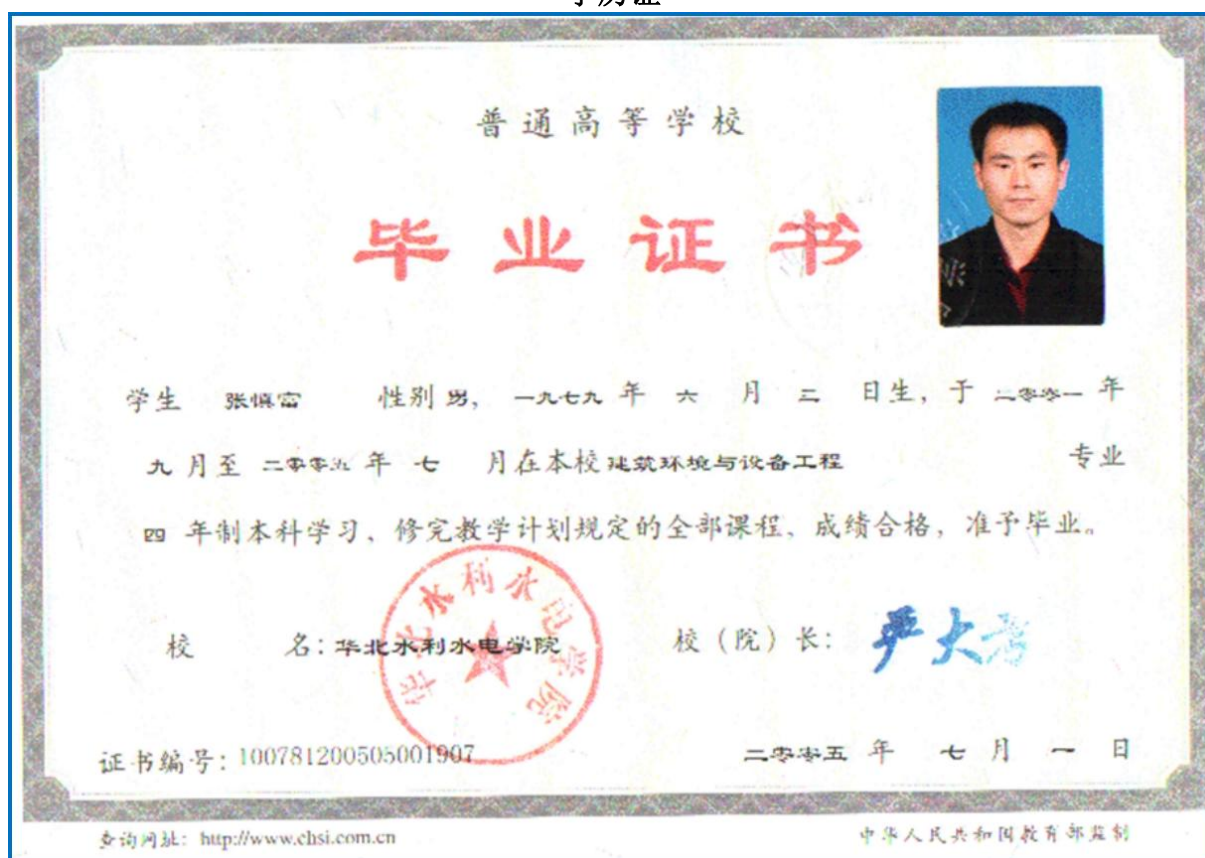 学历证
普通高等学校
毕业证书
学生 张慎富 性别 男, 一九七九 年 六 月 三 日生, 于 二零零一 年
九 月至 二零零五 年 七 月在本校 建筑环境与设备工程 专业
四 年制本科学习、修完教学计划规定的全部课程, 成绩合格, 准予毕业。
华北水利水电学院
校 名: 华北水利水电学院 校 (院) 长: 严大考
证书编号: 100781200505001907 二零零五 年 七 月 一 日
查询网址: http://www.chsi.com.cn 中华人民共和国教育部监制